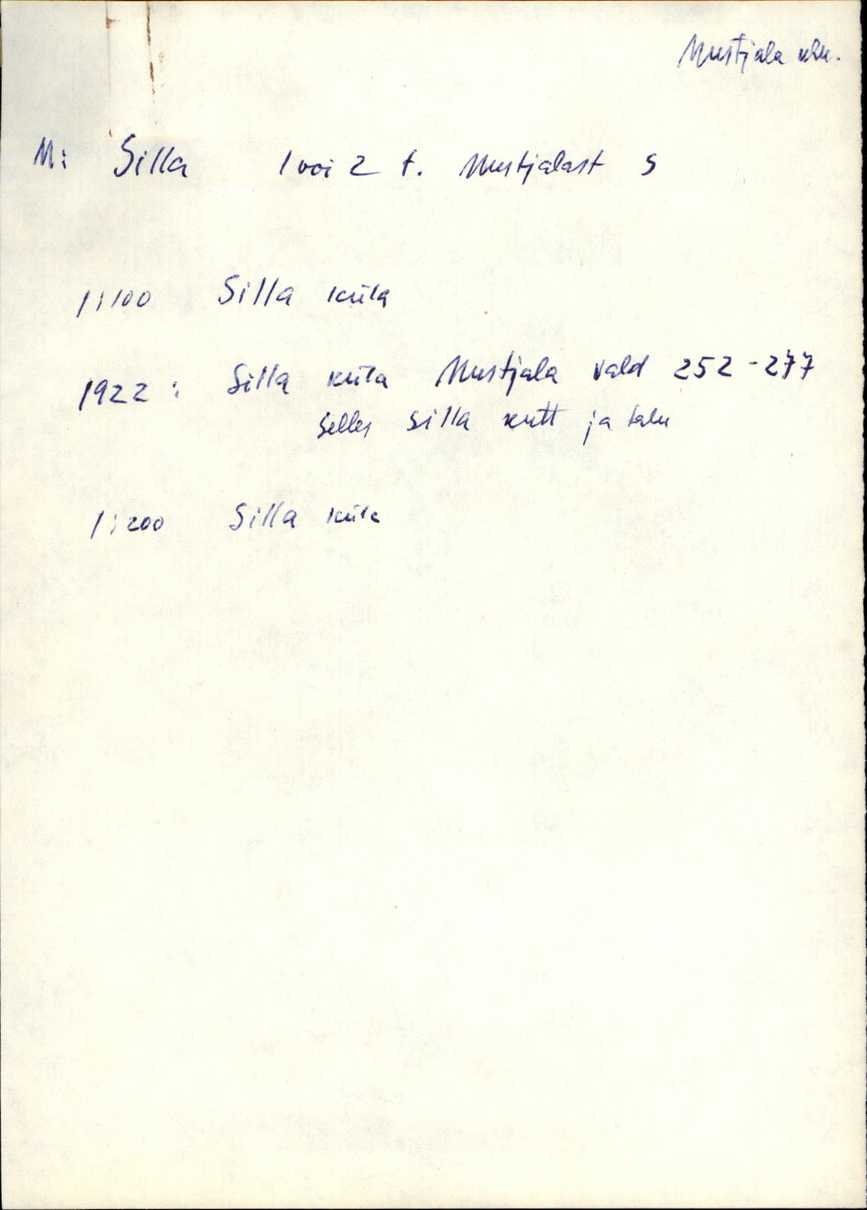 Mustjala khk.
M: Silla 1 või 2 t. Mustjalast S
1:100 Silla küla
1922: Silla küla Mustjala vald 252-277
Selles Silla kutt ja talu
1:200 Silla küla